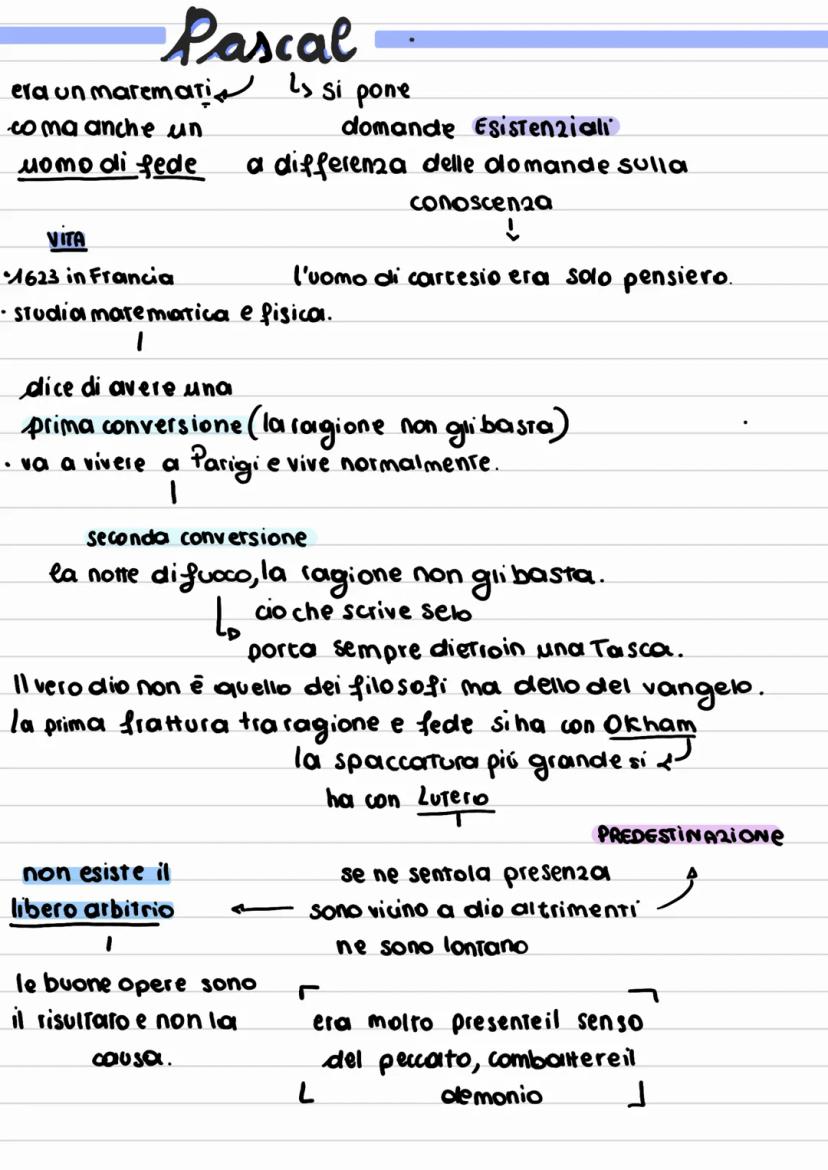 Pascal
era un matemati
si pone
co ma anche un
domande Esistenziali
uomo di fede
a differenza delle domande sulla
conoscenza
VITA
•1623 in Francia
l'uomo di cartesio era solo pensiero.
• studia matematica e fisica.
dice di avere una
prima conversione (la ragione non gli basta)
• va a vivere a Parigi e vive normalmente.
seconda conversione
la notte di fuoco, la ragione non gli basta.
cio che scrive selo
porta sempre dietro in una Tasca.
Il vero dio non è quello dei filosofi ma dello del vangelo.
la prima frattura tra ragione e fede si ha con Okham
la spaccatura più grande si
ha con Lutero
PREDESTINAZIONE
non esiste il
se ne sento la presenza
libero arbitrio
sono vicino a dio altrimenti
ne sono lontano
le buone opere sono
il risultato e non la
era molto presente il senso
causa.
del peccato, combattere il
demonio